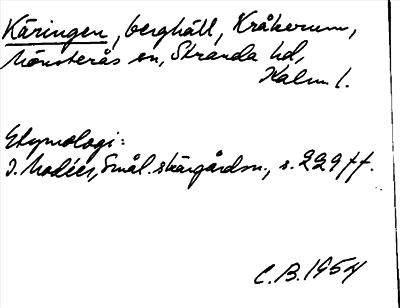 Käringen, berghäll, Kråkerum,
Mönsterås sn, Stranda hd,
Kalm. l.
Etymologi:
I. Modéer, Smål. skärgårdsn., s. 229 ff.
C.B. 1954